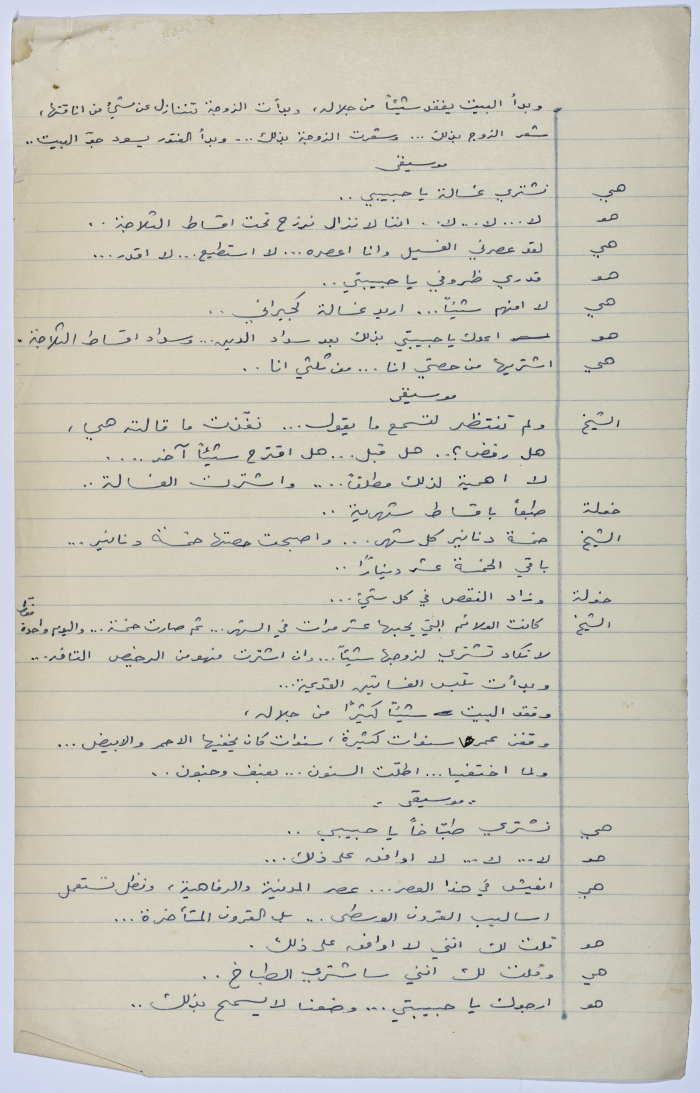 وبدأ البيت يفقد شيئاً من جلاله، وبدأت الزوجة تتنازل عن شيئ من اناقتها،
شعر الزوج بذلك ... وشعرت الزوجة بذلك ... وبدأ الفتور يسود جوّ البيت ..
موسيقى
هي نشتري غسالة يا حبيبي ..
هو لا ... لا .. لا .. اننا لا نزال نرزح تحت اقساط الثلاجة ..
هي لقد عصرني الغسيل وانا اعصره ... لا استطيع ... لا اقدر ...
هو قدري ظروفي يا حبيبتي ..
هي لا افهم شيئاً ... اريد غسالة كجيراني ..
هو اعدك يا حبيبتي بذلك بعد سداد الدين ... وسداد اقساط الثلاجة .
هي اشتريها من حصتي انا ... من ثلثي انا ..
موسيقى
الشيخ ولم تنتظر لتسمع ما يقول ... نفّذت ما قالته هي،
هل رفض؟ .. هل قبل ... هل اقترح شيئاً آخر ....
لا اهمية لذلك مطلقاً .... واشترت الغسالة ..
خولة طبعاً باقساط شهرية ..
الشيخ خمسة دنانير كل شهر ... واصبحت حصتها خمسة دنانير ...
باقي الخمسة عشر ديناراً ..
خولة وزاد النقص في كل شيئ ...
الشيخ كانت الولائم التي يحبها عشر مرات في الشهر ... ثم صارت خمسة ... واليوم واحدة فقط
لا تكاد تشتري لزوجها شيئاً ... وان اشترت فهو من الرخيص التافه ...
وبدأت تلبس الفساتين القديمة ...
وفقد البيت شيئاً كثيراً من جلاله،
وقفز عمره سنوات كثيرة، سنوات كان يخفيها الاحمر والابيض ...
ولما اختفيا ... اطلّت السنون ... بعنف وجنون ..
- موسيقى -
هي نشتري طبّاخاً يا حبيبي ..
هو لا ... لا ... لا اوافق على ذلك ...
هي انعيش في هذا العصر ... عصر المدنية والرفاهية، ونظل نستعمل
اساليب القرون الوسطى ... بل القرون المتأخرة ...
هو قلت لك انني لا اوافق على ذلك .
هي وقلت لك انني ساشتري الطباخ ..
هو ارجوك يا حبيبتي ... وضعنا لا يسمح بذلك ..